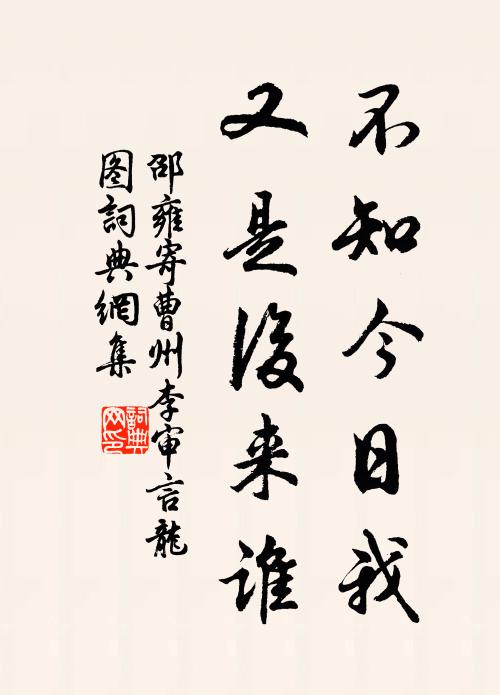 不知今日我
又是後来谁
邵雍寄曹州李审言龍
图詞典網集
詞典
网印